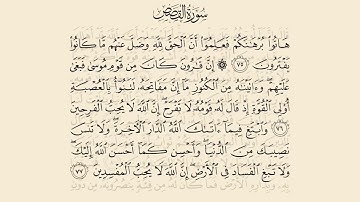 سُورَةُ القَصَصِ
هَاتُوا۟ بُرْهَـٰنَكُمْ فَعَلِمُوٓا۟ أَنَّ ٱلْحَقَّ لِلَّهِ وَضَلَّ عَنْهُم مَّا كَانُوا۟
يَفْتَرُونَ ٧٥ إِنَّ قَـٰرُونَ كَانَ مِن قَوْمِ مُوسَىٰ فَبَغَىٰ
عَلَيْهِمْ وَءَاتَيْنَـٰهُ مِنَ ٱلْكُنُوزِ مَآ إِنَّ مَفَاتِحَهُۥ لَتَنُوٓأُ بِٱلْعُصْبَةِ
أُو۟لِى ٱلْقُوَّةِ إِذْ قَالَ لَهُۥ قَوْمُهُۥ لَا تَفْرَحْ إِنَّ ٱللَّهَ لَا يُحِبُّ ٱلْفَرِحِينَ
٧٦ وَٱبْتَغِ فِيمَآ ءَاتَىٰكَ ٱللَّهُ ٱلدَّارَ ٱلْـَٔاخِرَةَ وَلَا تَنسَ
نَصِيبَكَ مِنَ ٱلدُّنْيَا وَأَحْسِن كَمَآ أَحْسَنَ ٱللَّهُ إِلَيْكَ
وَلَا تَبْغِ ٱلْفَسَادَ فِى ٱلْأَرْضِ إِنَّ ٱللَّهَ لَا يُحِبُّ ٱلْمُفْسِدِينَ ٧٧